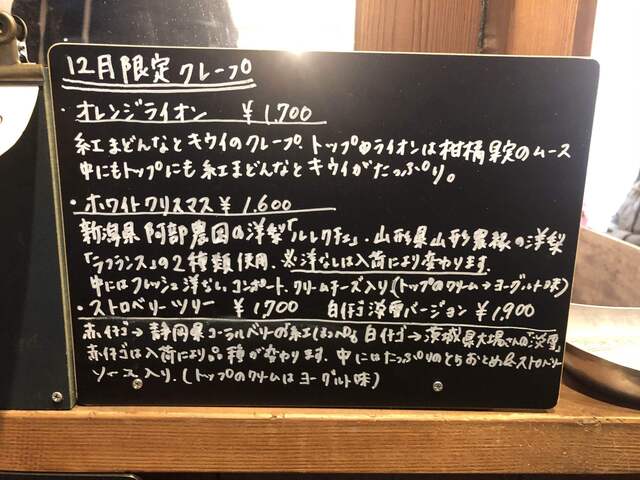 12月限定 クレープ
・オレンジライオン ¥1,700
紅まどんなとキウイのクレープ。トップのライオンは柑橘果実のムース
中にもトップにも紅まどんなとキウイがたっぷり。
・ホワイトクリスマス ¥1,600
新潟県 阿部農園の洋梨「ルレクチェ」・山形県山形農緑の洋梨
「ラフランス」の2種類使用。※洋なしは入荷により変わります。
中にはフレッシュ洋なし、コンポート、クリームチーズ入り(トップのクリーム→ヨーグルト味)
・ストロベリーツリー ¥1,700 白イチゴ淡雪バージョン ¥1,900
赤イチゴ→静岡県コーラルベリーの「紅ほっぺ」 白イチゴ→茨城県大場さんの「淡雪」
赤イチゴは入荷により品種が変わります。中にはたっぷりのとちおとめ&ストロベリー
ソース入り。(トップのクリームはヨーグルト味)